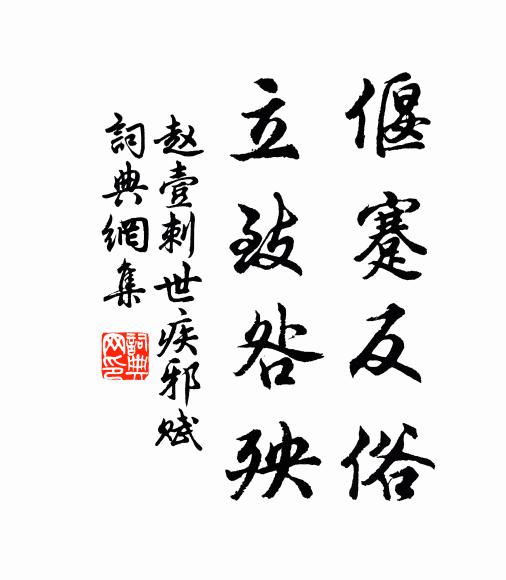 偃蹇反俗
立致咎殃
赵壹刺世疾邪赋
詞典網集
詞典网印